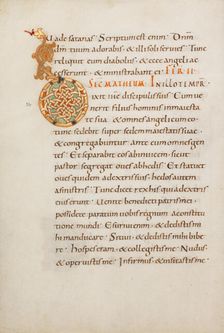 Vade satanas Scriptum est enim · Dnm
dm tuum adorabis · & illi soli servies · Tunc
reliquit eum diabolus · & ecce angeli ac
cesserunt · & ministrabant ei · FER II
SEC MATHEUM · IN ILLO TEMPR
DIXIT ihs discipulis suis · Cum ve
nerit filius hominis in maiesta
te sua · & omnes angeli eum eo
tunc sedebit super sedem maiestatis suae ·
& congregabuntur ante eum omnes gen
tes · Et separabit eos ab invicem · sicut
pastor segregat oves ab hedis · Et statu&
oves quidem a dextris suis · hedos autem
a sinistris · Tunc dic& rex his qui a dextris
eius erunt · Venite benedicti patris mei ·
possidete paratum vobis regnum a constitu
tione mundi · Esurivi enim · & dedistis mi
hi manducare · Sitivi · & dedistis mihi bibe
re · Hospes eram · & collegistis me · Nudus
& operuistis me · Infirmus · & visitastis me ·